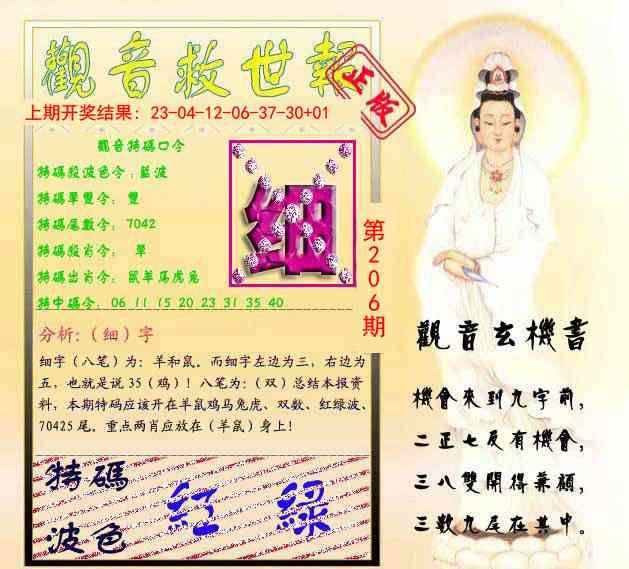 觀音救世報
正版
上期开奖结果：23-04-12-06-37-30+01
觀音特碼口令
特碼段波色令：藍波
特碼單雙令： 雙
特碼尾數令： 7042
特碼段肖令： 單
特碼出肖令： 鼠羊马虎兔
特中碼令： 06 11 15 20 23 31 35 40
细
第206期
分析:（细）字
细字（八笔）为：羊和鼠。而细字左边为三，右边为
五，也就是说 35（鸡）！八笔为：（双）总结本报资
料，本期特码应该开在羊鼠鸡马兔虎、双数、红绿波、
70425 尾。重点两肖应放在（羊鼠）身上！
特碼
波色
紅 綠
觀音玄機書
機會來到九字前，
二正七反有機會，
三八雙開得兼顧，
三數九尾在其中。